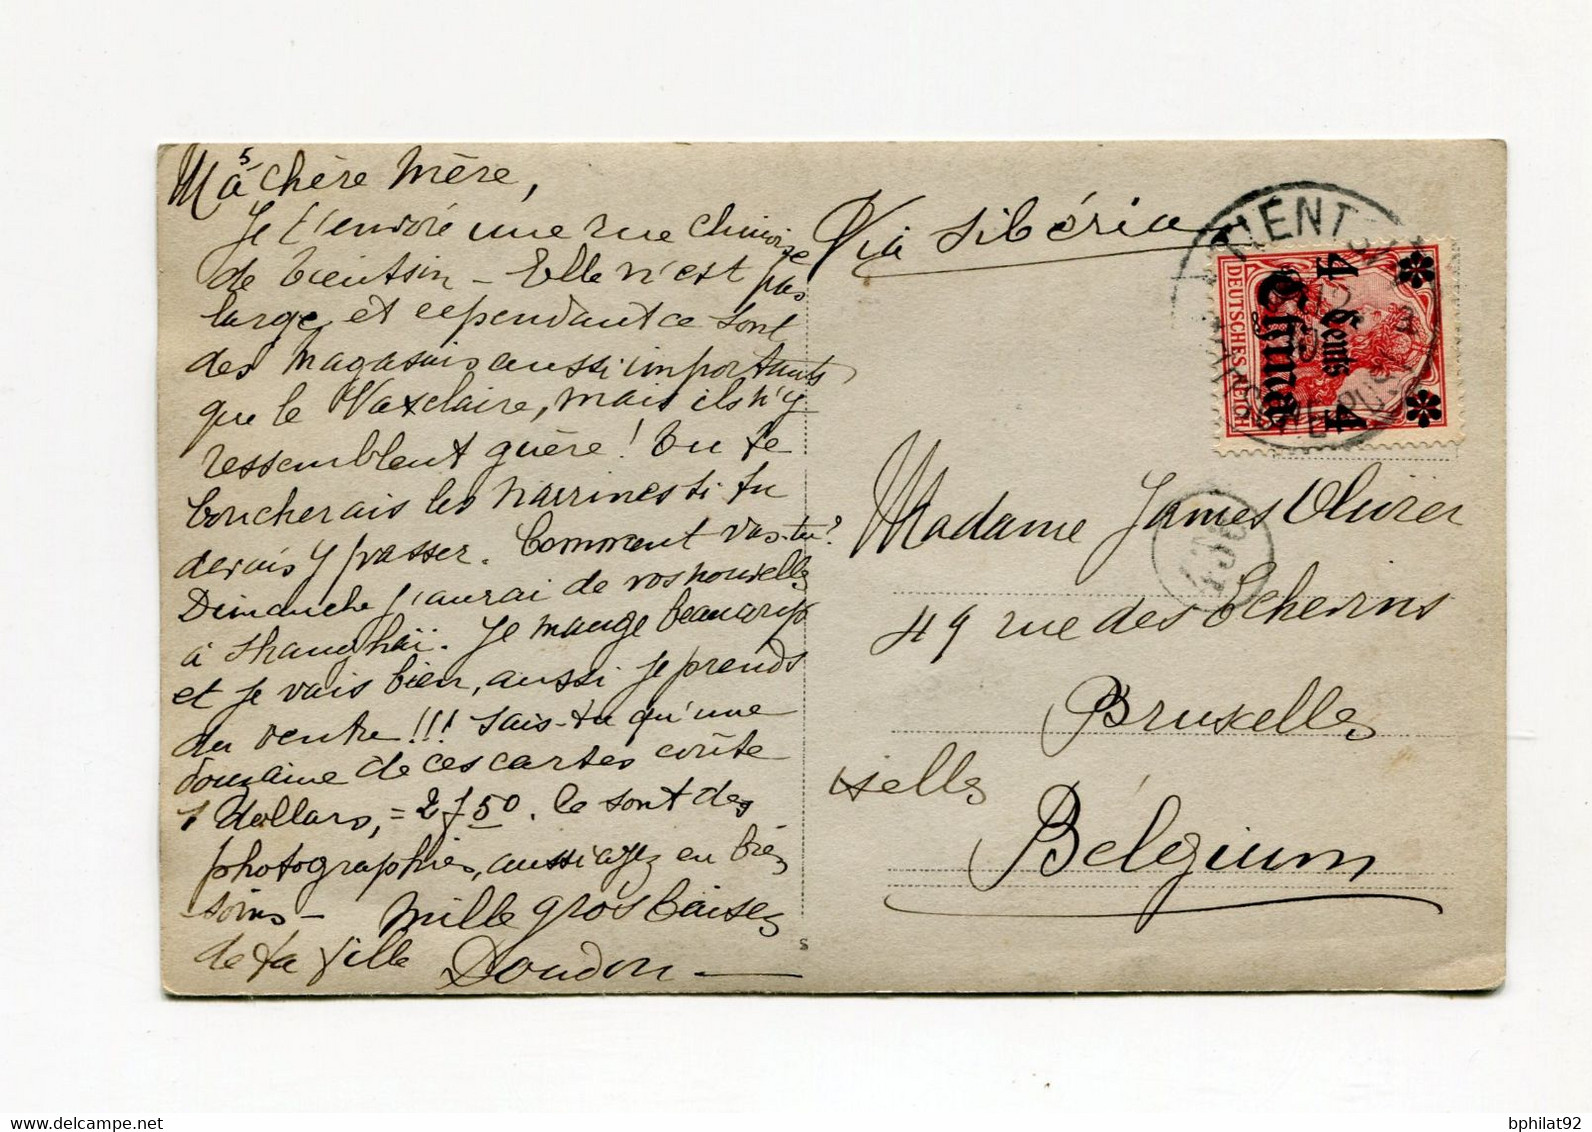 5
Ma chère Mère,
Je t'envoie une rue chinoise
de Tientsin - Elle n'est pas
large, et cependant ce sont
des magasins aussi importants
que le Vaxelaire, mais ils n'y
ressemblent guère! Tu te
boucherais les narrines si tu
devais y passer. Comment vas-tu?
Dimanche j'aurai de vos nouvelles
à Shanghaï. Je mange beaucoup
et je vais bien, aussi je prends
du ventre!!! Sais-tu qu'une
douzaine de ces cartes coûte
1 dollars, = 2 f 50. Ce sont des
photographies, aussi ayez en bien
soins - Mille gros baises
de ta fille Doudon
Via Sibéria
TIENTSIN
DEUTSCHE POST
DEUTSCHES REICH
4 Cents 4
China
Madame James Olivier
49 rue des Echevins
Bruxelles
Ixelles
Bélgium
S
bphilat92